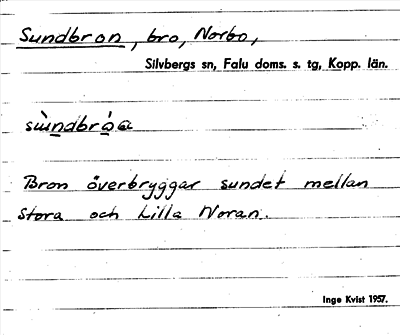 Sundbron, bro, Norbo,
Silvbergs sn, Falu doms. s. tg, Kopp. län.
Bron överbryggar sundet mellan
Stora och Lilla Noran.
Inge Kvist 1957.